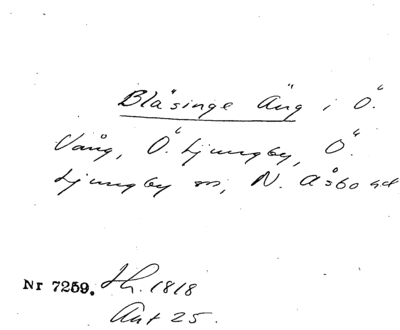 Blåsinge Äng i Ö.
Vång, Ö. Ljungby, Ö.
Ljungby sn, N. Åsbo hd
Nr 7259. Lh. 1818
Akt 25.